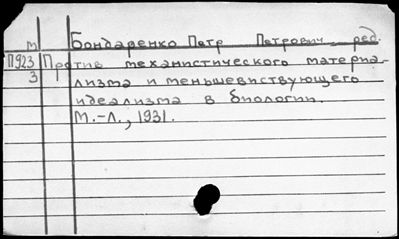 м Бондаренко Петр Петрович, ред.
П923 Против механистического материа-
3 лизма и меньшевиствующего
идеализма в биологии.
М.-Л., 1931.